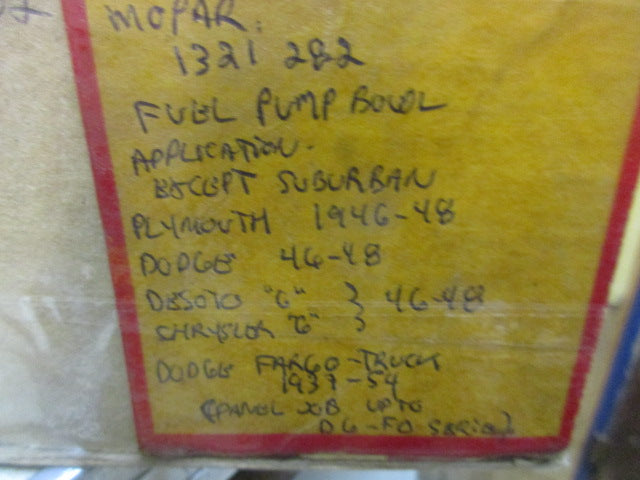 MOPAR.
1321 282
FUEL PUMP BOWL
APPLICATION.
EXCEPT SUBURBAN
PLYMOUTH 1946-48
DODGE 46-48
DESOTO "6" } 46-48
CHRYSLER "6" }
DODGE FARGO-TRUCK
1937-54
(PANEL JOB UP TO
D6-FD SERIES)